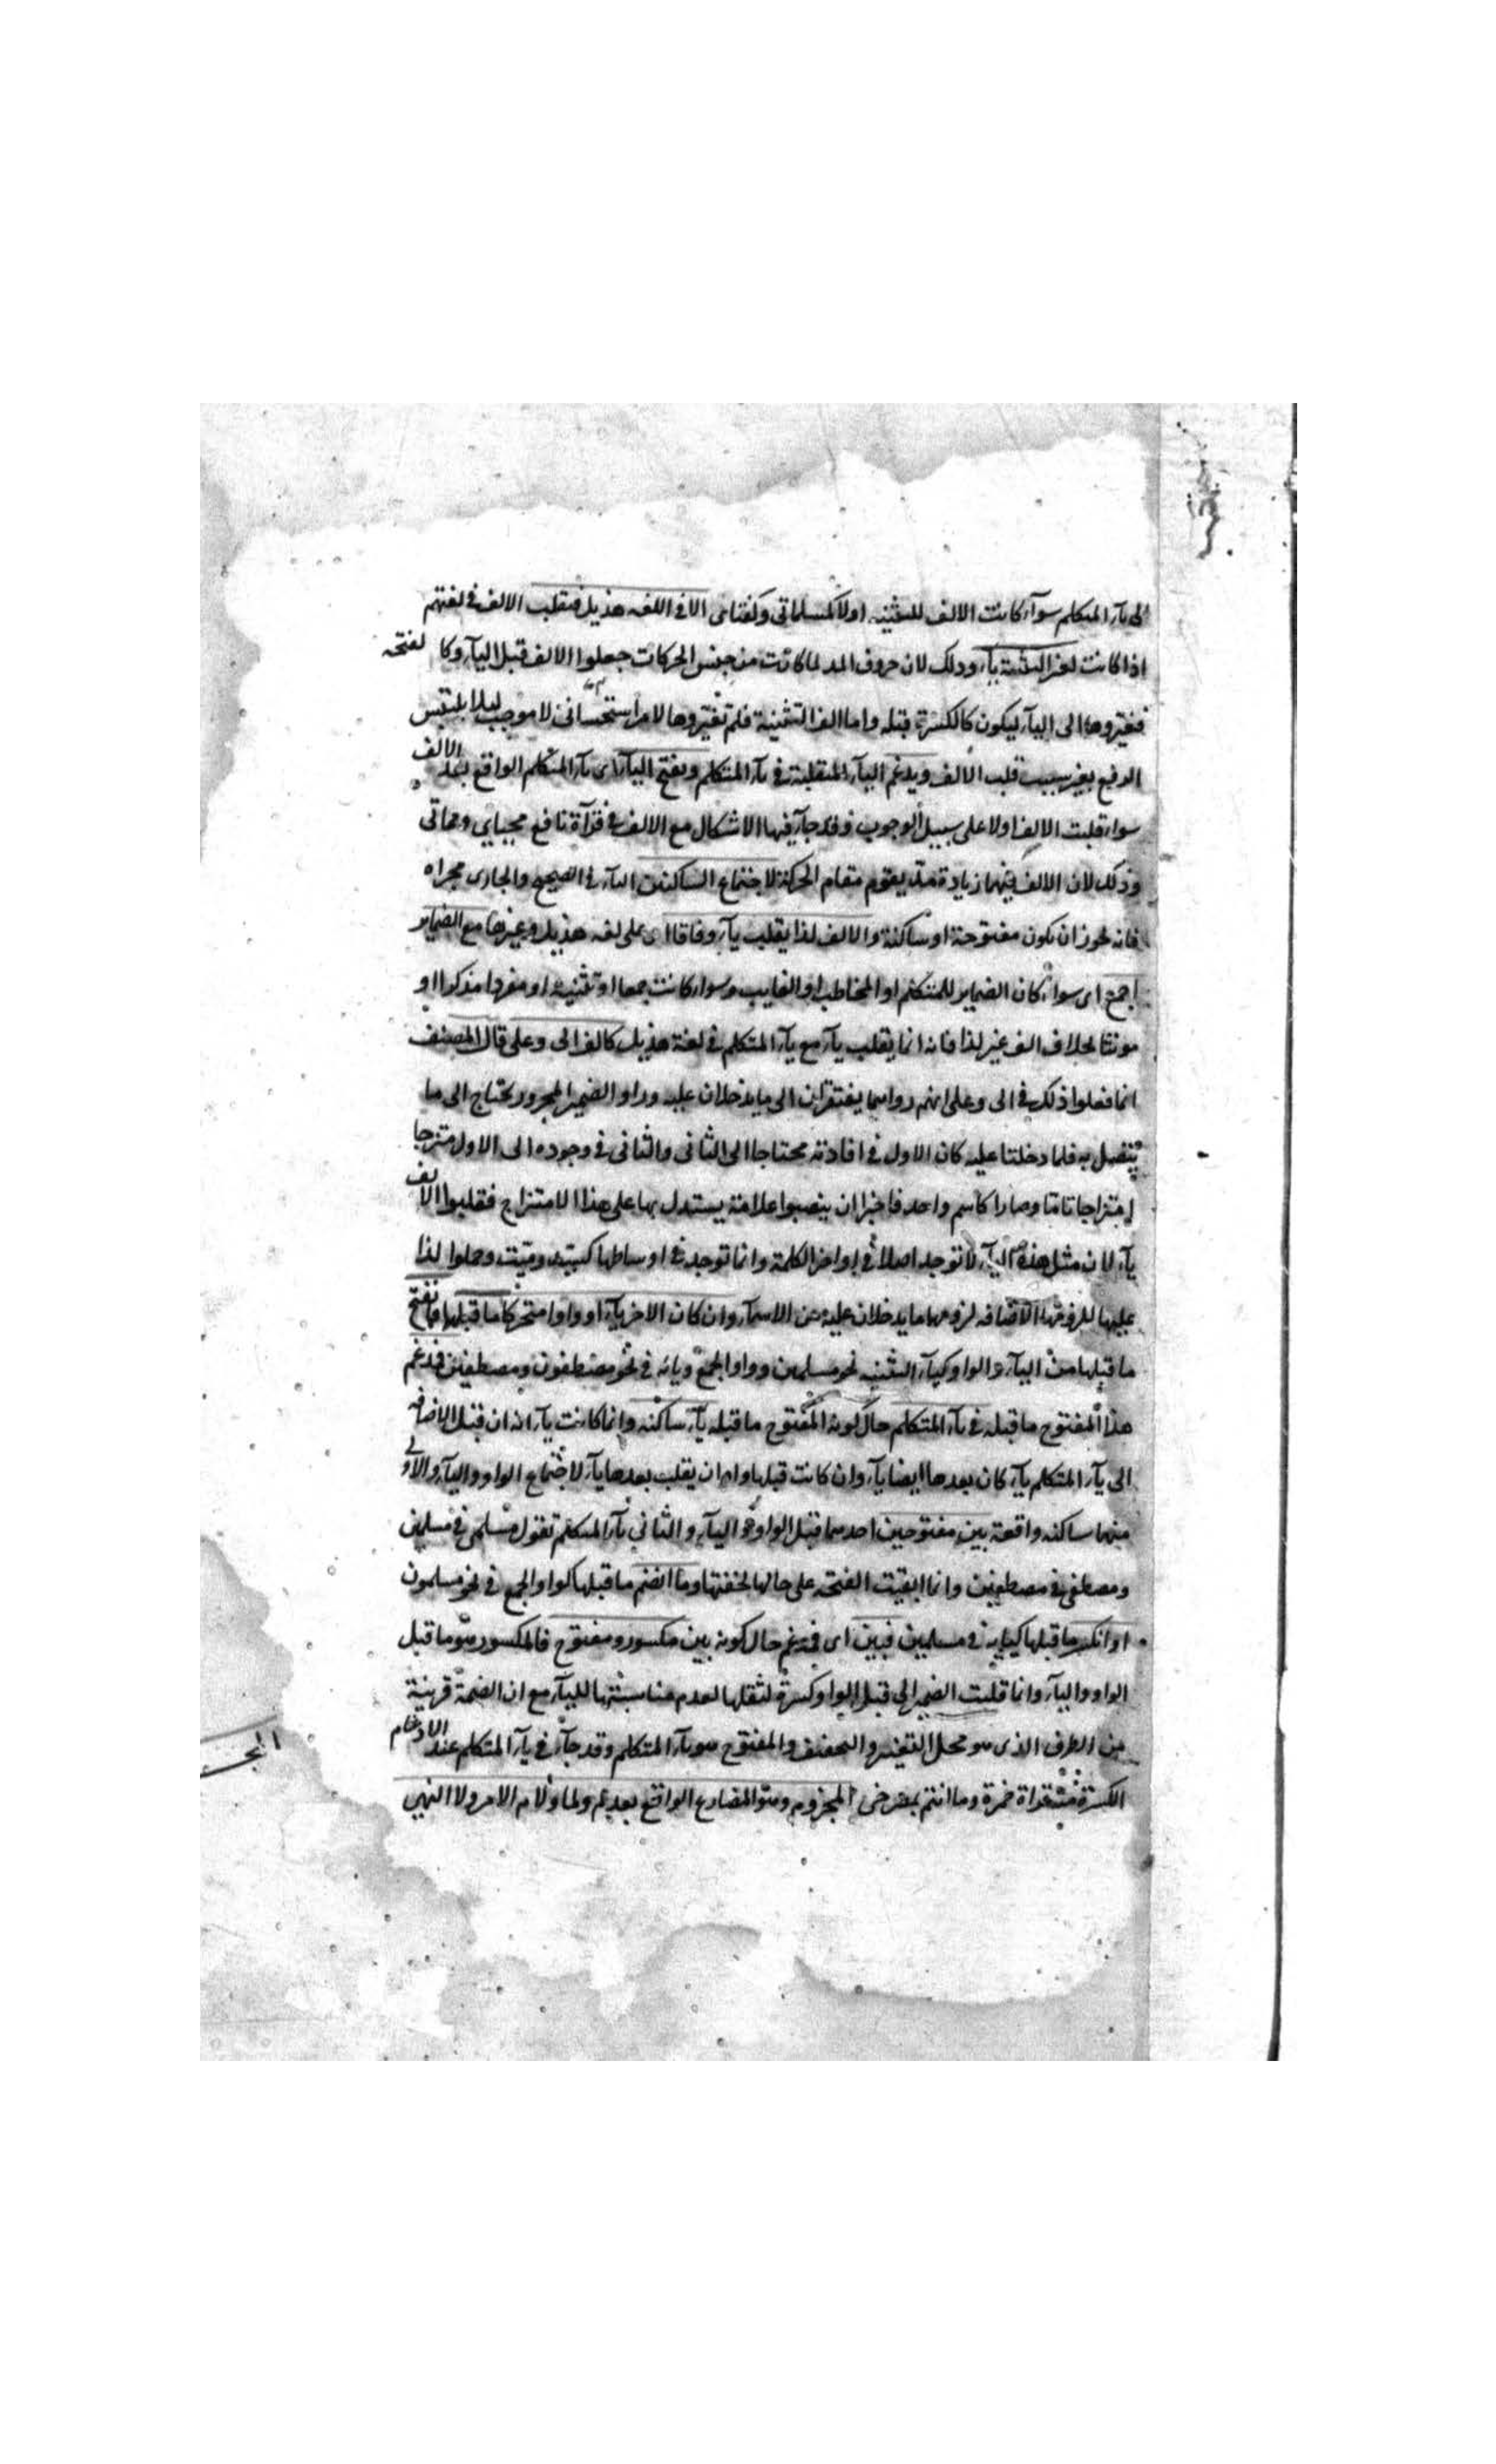 الى يآء المتكلم سوآء كانت الالف للتثنيه اولا كمسلماتى وكفتاى الا فى اللغه هذيل فتقلب الالف فى لغتهم
اذا كانت لغير التثنية يآء وذلك لان حروف المد لما كانت من جنس الحركات جعلوا الالف قبل اليآء وكا لفتحه
فغيروها الى اليآء ليكون كالكسرة قبله واما الف التثنية فلم تغيروها لامر استحسانى لا موجب ليلا يلتبس
الرفع بغير سبب قلب الالف ويدغم اليآء المنقلبة فى يآء المتكلم ويفتح اليآء اى يآء المتكلم الواقع بعد الالف
سوآء قلبت الالف اولا على سبيل الوجوب وقد جآء فيها الاسكان مع الالف فى قرآة نافع محياي ومماتى
وذلك لان الالف فيهما زيادة مد يقوم مقام الحركة لاجتماع الساكنين اليآء فى الصحيح والجارى مجراه
فانه يجوز ان يكون مفتوحة او ساكنة والالف لذا يقلب يآء وفاقا اى على لغه هذيل وغيرها مع الضماير
اجمع اى سوآء كان الضماير للمتكلم او المخاطب او الغايب وسوآء كانت جمعا او تثنية او مفردا مذكرا او
مونثا بخلاف الف غير لذا فانه انما يقلب يآء مع يآء المتكلم فى لغة هذيل كالف الى وعلى قال المصنف
انما فعلوا ذلك فى الى وعلى انهم رواهما يفتقران الى ما يدخلان عليه وراو الضمير المجرور يحتاج الى ما
يتصل به فلما دخلتا عليه كان الاول فى افادته محتاجا الى الثانى والثانى فى وجوده الى الاول متزجا
امتزاجا تاما وصارا كاسم واحد فاخبر ان ينصبوا علامة يستدل بها على هذا الامتزاج فقلبوا الالف
يآء لان مثل هذه اليآء لا توجد اصلا فى اواخر الكلمة وانما توجد فى اوساطها كبيت وميت وحملوا لذا
عليها للزومها الاضافه لزومهما ما يدخلان عليه من الاسمآء وان كان الاخر يآء او واوا متحركا ما قبلها فانفتح
ما قبلها من اليآء والواو كيآء التثنيه نحو مسلمين وواو الجمع ويائه فى نحو مصطفون ومصطفين فيدغم
هذا المفتوح ما قبله فى يآء المتكلم حال كونه المفتوح ما قبله يآء ساكنه وانما كانت يآء لانه ان قبل الاضافه
الى يآء المتكلم يآء كان بعدها ايضا يآء وان كانت قبلها واو ان يقلب بعدها يآء لاجتماع الواو واليآء والاولى
منهما ساكنه واقعة بين مفتوحين احدهما قبل الواو واليآء والثانى يآء المتكلم تقول مسلمى فى مسلمين
ومصطفى فى مصطفين وانما ابقيت الفتحه على حالها لخفتها وما انضم ما قبلها كواو الجمع فى نحو مسلمون
او انكسر ما قبلها كيايه فى مسلمين فبين اى فيدغم حال كونه بين مكسور ومفتوح فالمكسور هو ما قبل
الواو واليآء وانما قلبت الضم الى قبل الواو كسرة لثقلها لعدم مناسبتها لليآء مع ان الضمة قريبة
من الطرف الذى هو محل التغيير والتخفيف والمفتوح هو يآء المتكلم وقد جآء فى يآء المتكلم عند الادغام
الكسرة فى قراة حمزة وما انتم بمصرخى المجزوم وهو المضارع الواقع بعد لم ولما ولام الامر ولا النهى
المجز